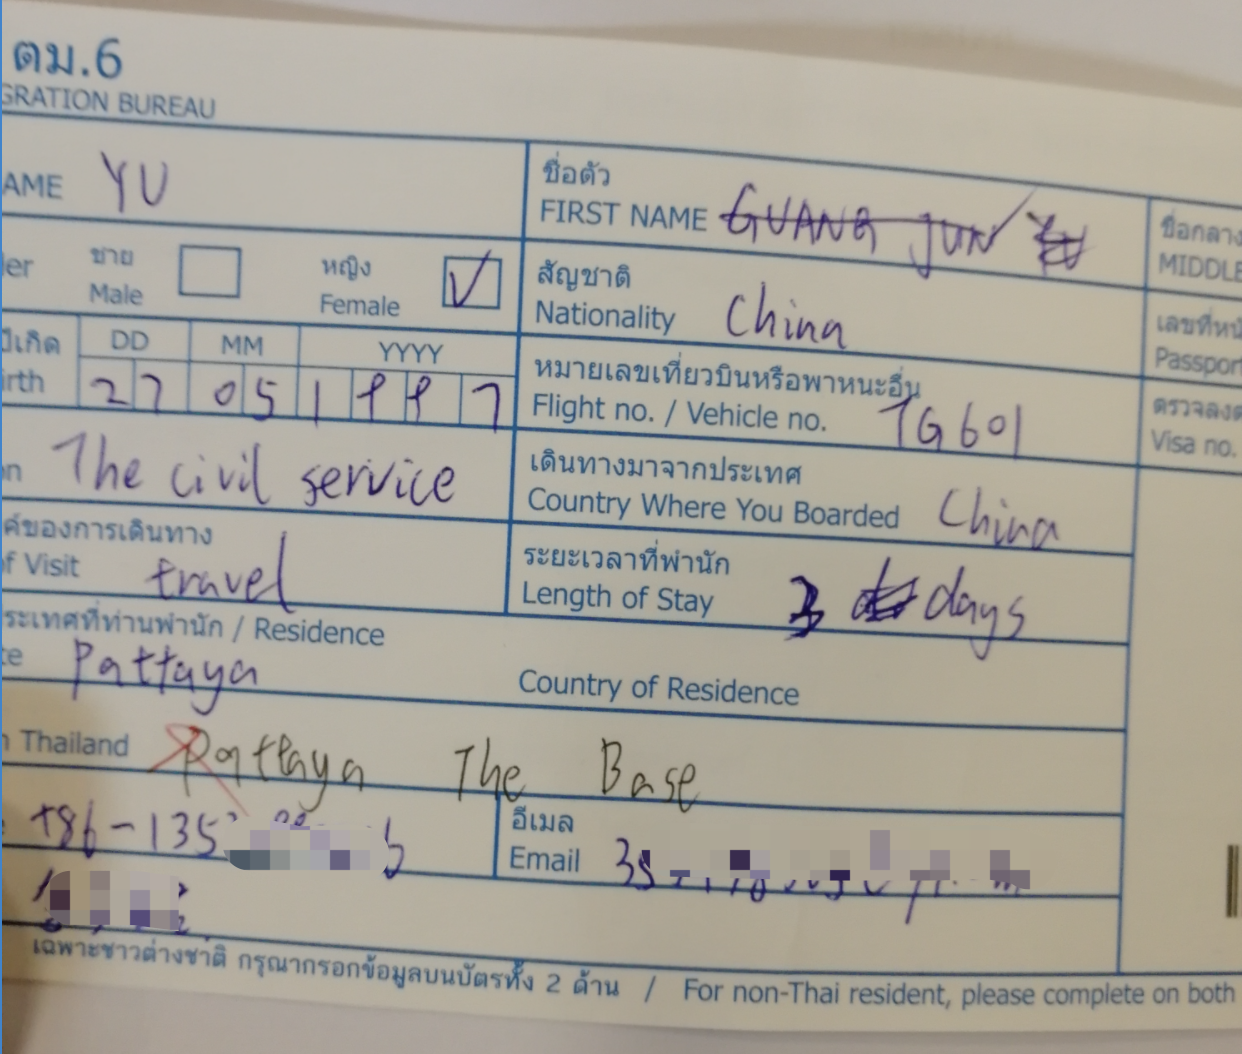 ตม.6
GRATION BUREAU
AME YU
ชื่อตัว
FIRST NAME GUANG JUN
ชื่อกลาง
MIDDLE
der ชาย Male หญิง Female ✓
สัญชาติ
Nationality China
เลขที่หนั
Passport
ปีเกิด DD MM YYYY
irth 27 05 1997
หมายเลขเที่ยวบินหรือพาหนะอื่น
Flight no. / Vehicle no. TG601
ตรวจลงต
Visa no.
n The civil service
เดินทางมาจากประเทศ
Country Where You Boarded China
ค์ของการเดินทาง
of Visit travel
ระยะเวลาที่พำนัก
Length of Stay 3 days
ระเทศที่ท่านพำนัก / Residence
te Pattaya
Country of Residence
n Thailand Pattaya The Base
+86-135
อีเมล
Email
เฉพาะชาวต่างชาติ กรุณากรอกข้อมูลบนบัตรทั้ง 2 ด้าน / For non-Thai resident, please complete on both